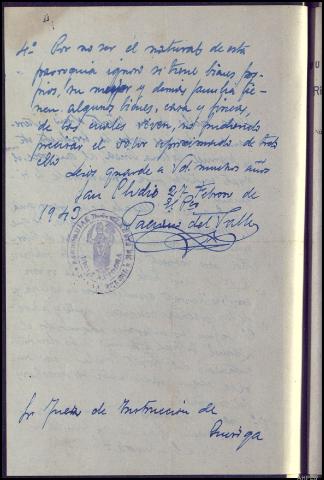 4º Por no ser él natural de esta
parroquia ignoro si tiene bienes pro-
pios, su mujer y demás familia tie-
nen algunos bienes, casa y fincas,
de los cuales viven, no pudiendo
precisar el valor aproximado de todo
ello
Dios guarde a Vd. muchos años
San Clodio 27 Febrero de
1940
del Valle
Sr Juez de Instrucción de
Quiroga